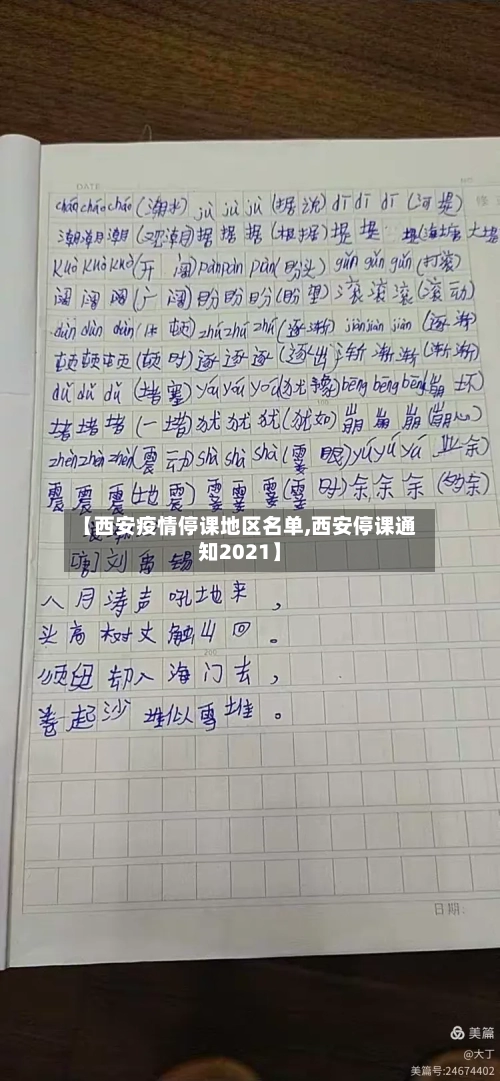 DATE
NO
cháo cháo cháo (潮水) jù jù jù (据说) dī dī dī (河堤)
潮潮潮 (观潮) 据据据 (根据) 堤堤
kuò kuò kuò (开阔) pàn pàn pàn (盼头) gǔn gǔn gǔn (打滚)
阔阔阔 (广阔) 盼盼盼 (盼望) 滚滚滚 (滚动)
dùn dùn dùn zhú zhú zhú (逐渐) jiàn jiàn jiàn (逐渐)
顿顿顿 (顿时) 逐逐逐 (逐出) 渐渐渐 (渐渐)
dǔ dǔ dǔ (堵塞) yóu yóu yóu (犹豫) bēng bēng bēng (崩坏)
堵堵堵 (一堵) 犹犹犹 (犹如) 崩崩崩
zhèn zhèn zhèn (震动) shà shà shà (霎眼) yú yú yú 业余
震震震 (地震) 霎霎霎 (霎时) 余余余
【西安疫情停课地区名单,西安停课通
知2021】
唐 刘禹锡
八月涛声吼地来，
头高 触山回。
须臾却入海门去，
卷起沙堆似雪堆。
200
日期:
美篇
@大丁
美篇号:24674402